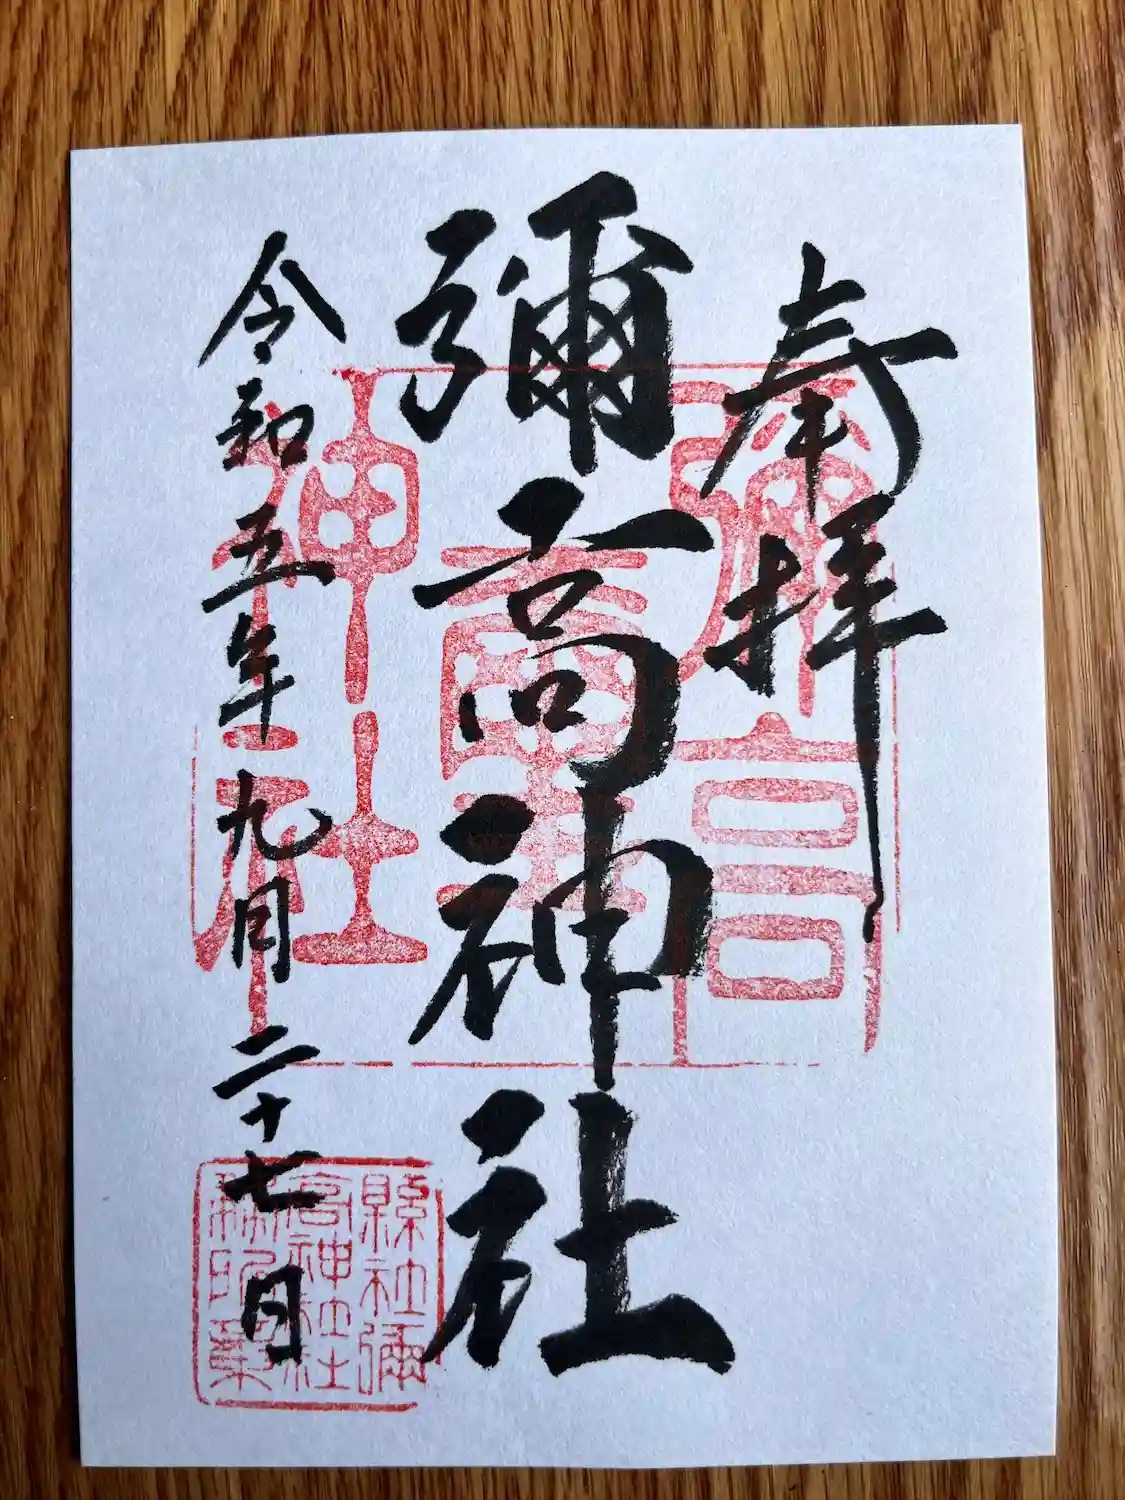 奉拝
彌高神社
令和五年九月二十七日
彌高
神社
縣社彌
高神社
務所章